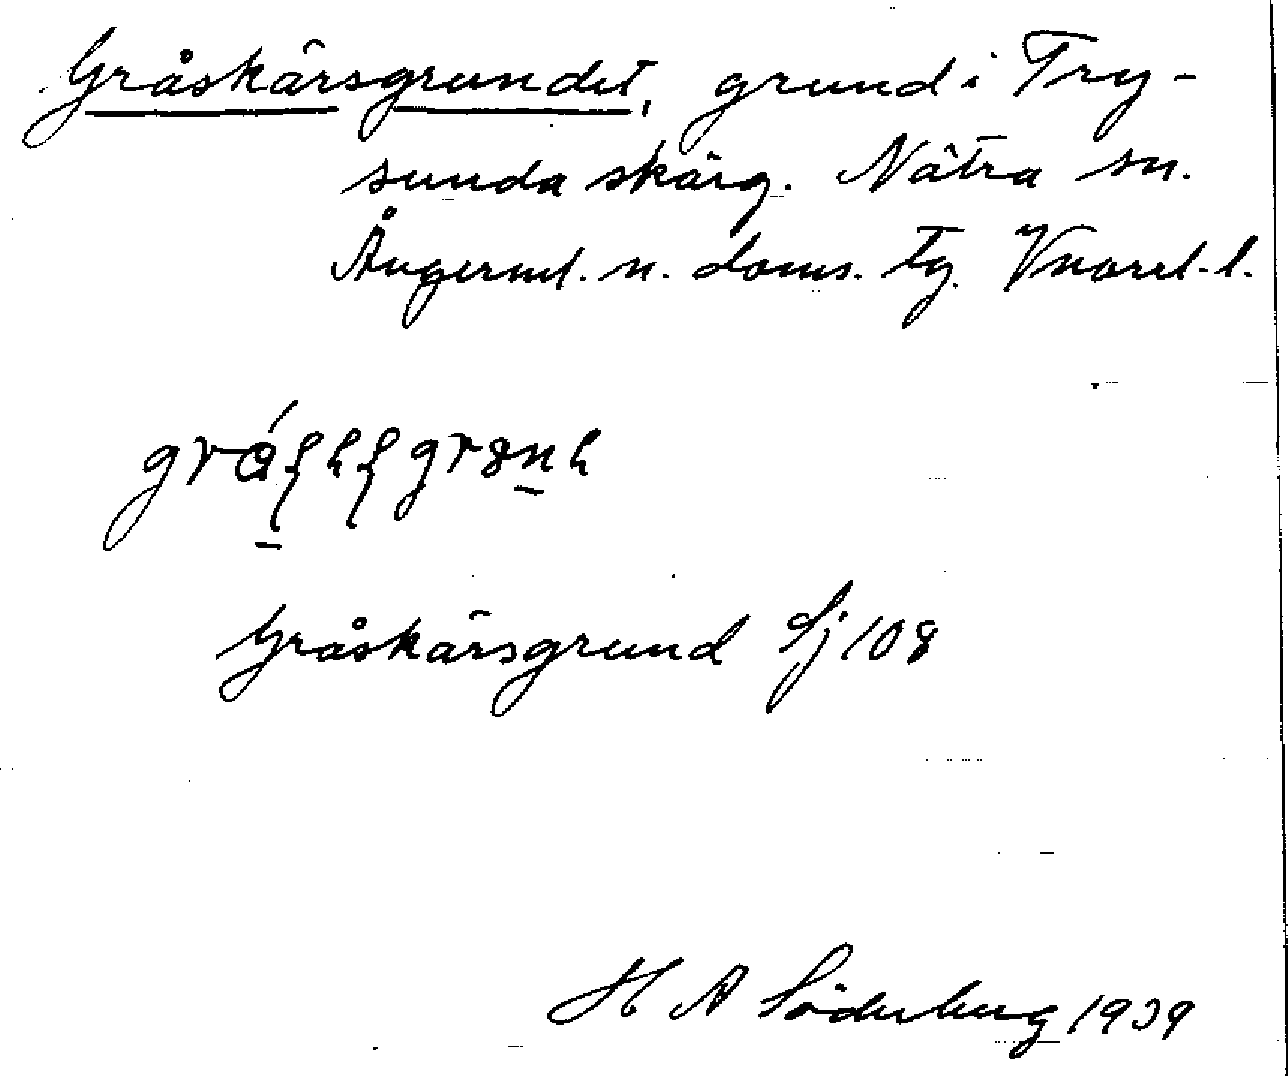 Gråskärsgrundet, grund i Try-
sunda skärg. Nätra sn.
Ångerml. n. doms. tg. Vnorrl. l.
Gråskärsgrund Sj 108
H A Söderberg 1939